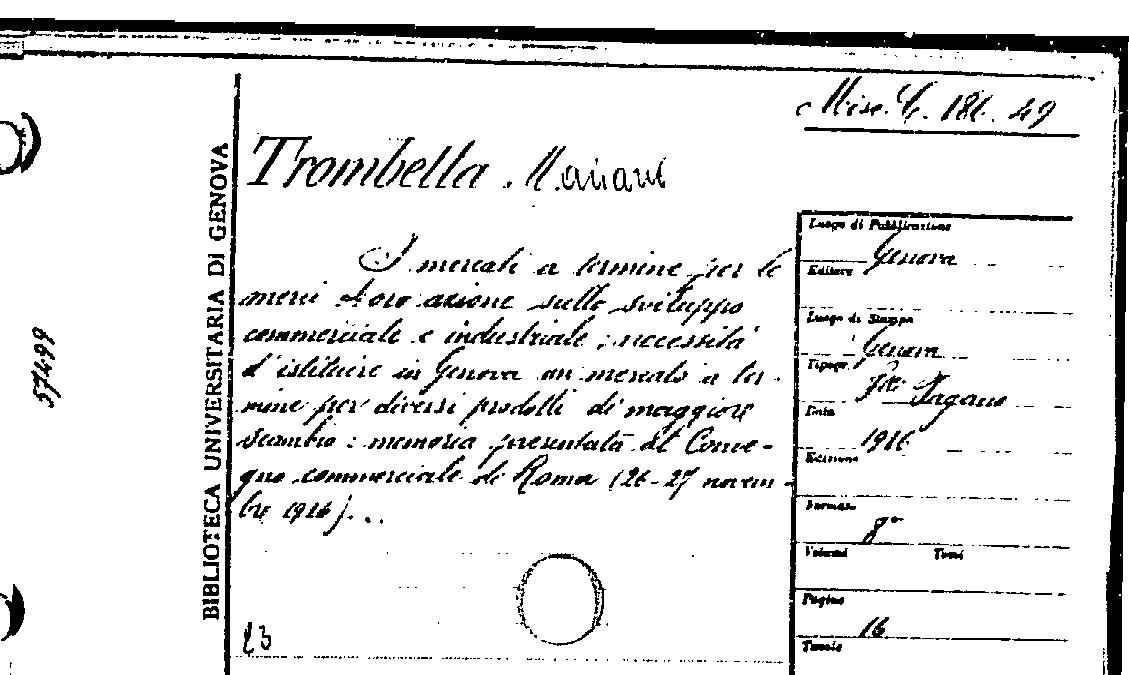 Misc. C. 186. 49
Trombetta Mariano
I mercati a termine per le
merci loro azione sullo sviluppo
commerciale e industriale ; necessità
d'istituire in Genova un mercato a ter-
mine per diversi prodotti di maggiore
scambio : memoria presentata al Conve-
gno commerciale di Roma (26-27 novem-
bre 1916)...
23
BIBLIOTECA UNIVERSITARIA DI GENOVA
57499
Luogo di Pubblicazione
Genova
Editore
Luogo di Stampa
Genova
Tipogr.
F.lli Pagano
Data
1916
Edizione
Formato
8°
Volumi Tomi
Pagine
16
Tavole